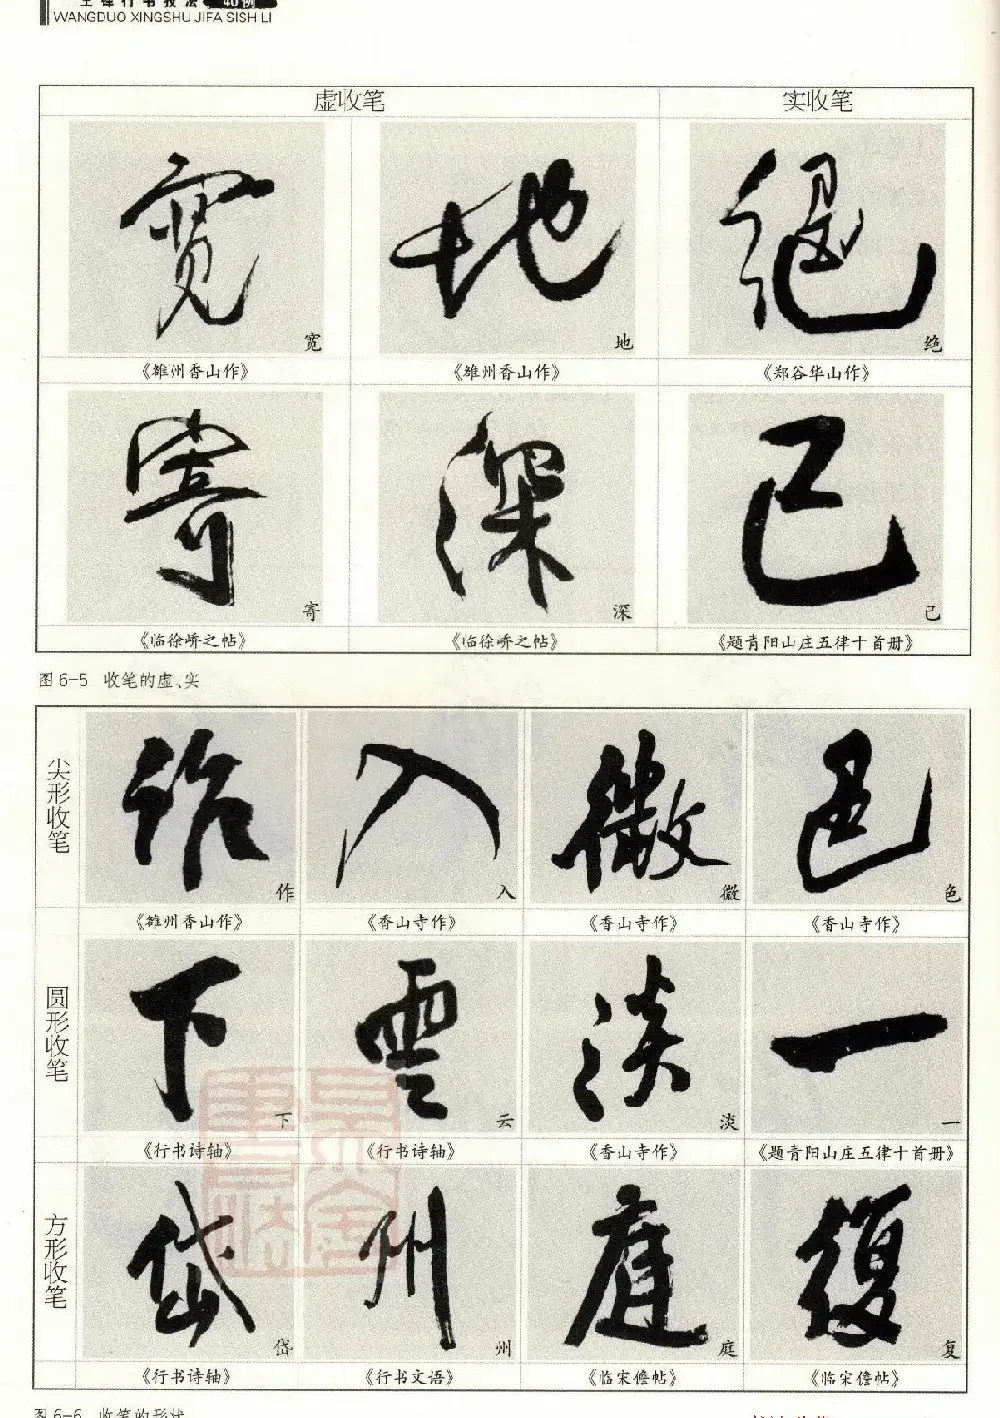 王铎行书技法 40例
WANGDUO XINGSHU JIFA SISH LI
虚收笔 实收笔
宽 地 绝
《雄州香山作》 《雄州香山作》 《郑谷华山作》
寄 深 己
《临徐峤之帖》 《临徐峤之帖》 《题青阳山庄五律十首册》
图 6-5 收笔的虚、实
尖形收笔
作 入 微 色
《雄州香山作》 《香山寺作》 《香山寺作》 《香山寺作》
圆形收笔
下 云 淡 一
《行书诗轴》 《行书诗轴》 《香山寺作》 《题青阳山庄五律十首册》
方形收笔
岱 州 庭 复
《行书诗轴》 《行书文语》 《临宋儋帖》 《临宋儋帖》
图 6-6 收笔的形状